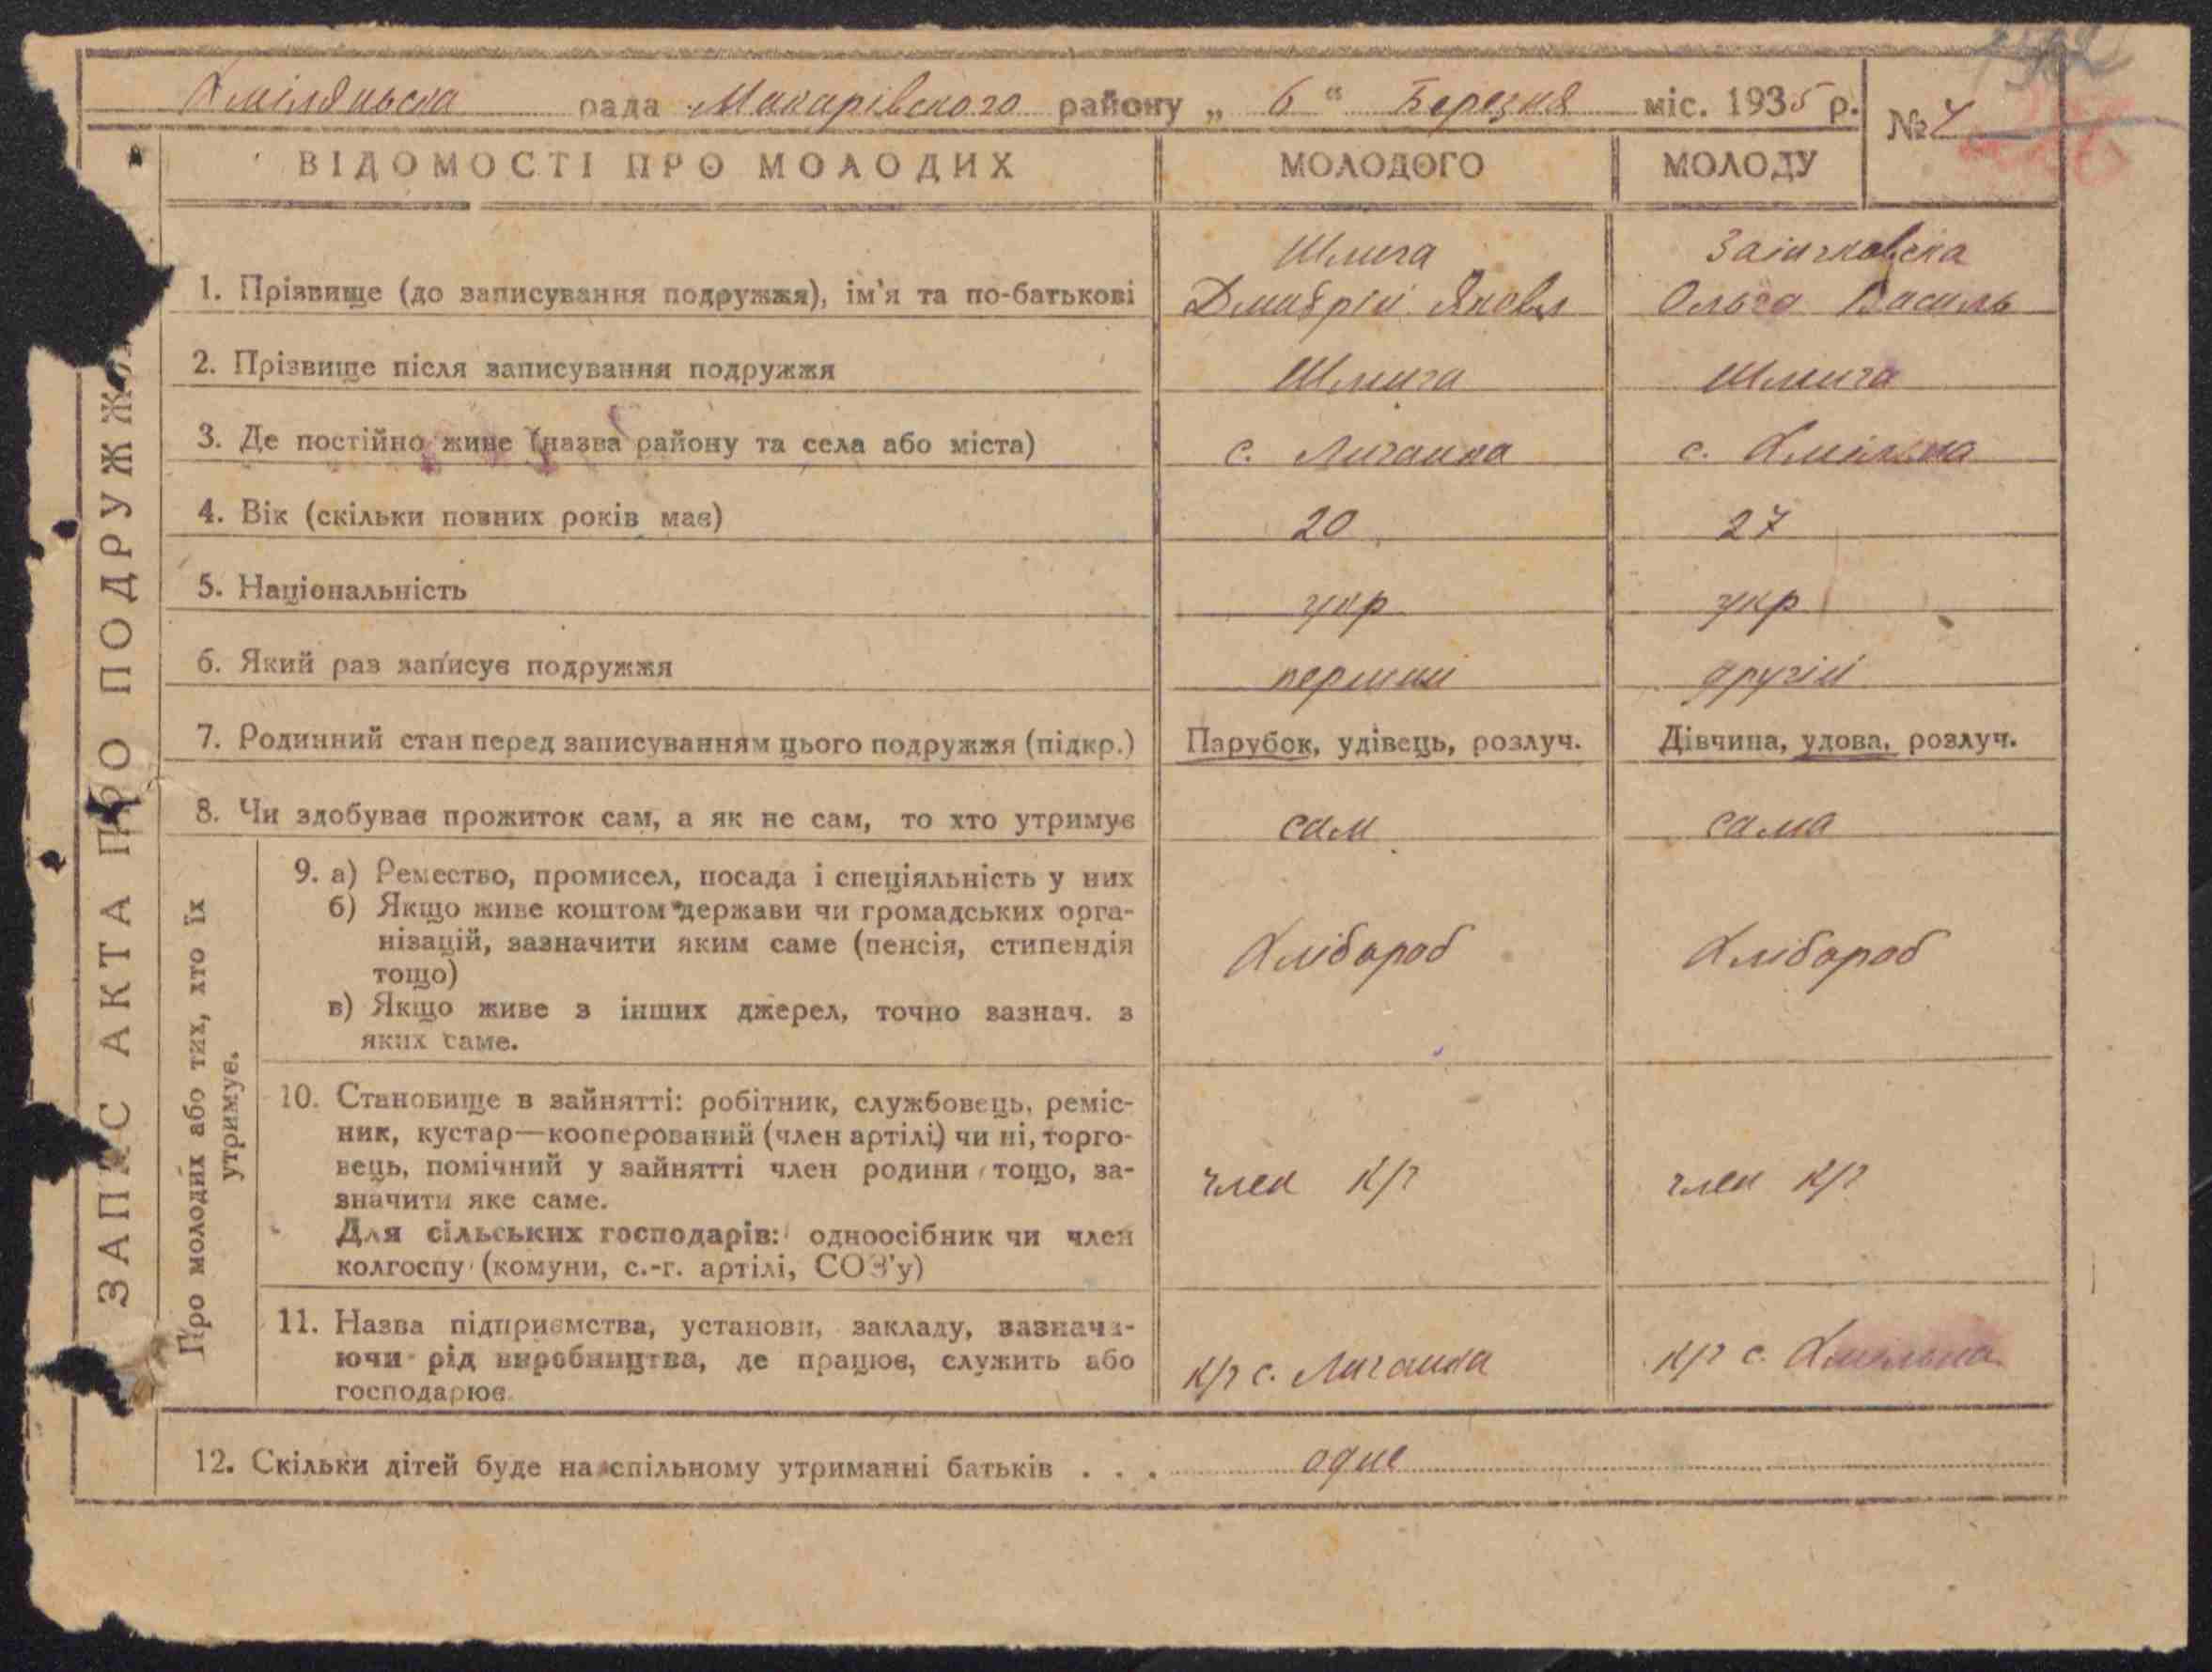 Хмілянська рада Макарівского району „ 6 “ Березня міс. 1935 р. № 4
ВІДОМОСТІ ПРО МОЛОДИХ МОЛОДОГО МОЛОДУ
ЗАПИС АКТА ПРО ПОДРУЖЖЯ
Шлига Заіачковска
1. Прізвище (до записування подружжя), ім'я та по-батькові Дмитрій Яковл Ольга Василь
2. Прізвище після записування подружжя Шлига Шлига
3. Де постійно живе (назва району та села або міста) с. Личанка с. Хмільна
4. Вік (скільки повних років має) 20 27
5. Національність укр укр
6. Який раз записує подружжя перший другій
7. Родинний стан перед записуванням цього подружжя (підкр.) Парубок, удівець, розлуч. Дівчина, удова, розлуч.
8. Чи здобуває прожиток сам, а як не сам, то хто утримує сам сама
Про молодих або тих, хто їх
утримує.
9. а) Ремество, промисел, посада і спеціяльність у них
б) Якщо живе коштом держави чи громадських орга-
нізацій, зазначити яким саме (пенсія, стипендія
тощо)
в) Якщо живе з інших джерел, точно зазнач. з
яких саме.
Хлібороб Хлібороб
10. Становище в зайнятті: робітник, службовець, реміс-
ник, кустар—кооперований (член артілі) чи ні, торго-
вець, помічний у зайнятті член родини тощо, за-
значити яке саме.
Для сільських господарів: одноосібник чи член
колгоспу (комуни, с.-г. артілі, СОЗ'у)
член к/г член к/г
11. Назва підприємства, установи, закладу, зазнача-
ючи рід виробництва, де працює, служить або
господарює.
к/г с. Личанка к/г с. Хмільна
12. Скільки дітей буде на спільному утриманні батьків . . . одне